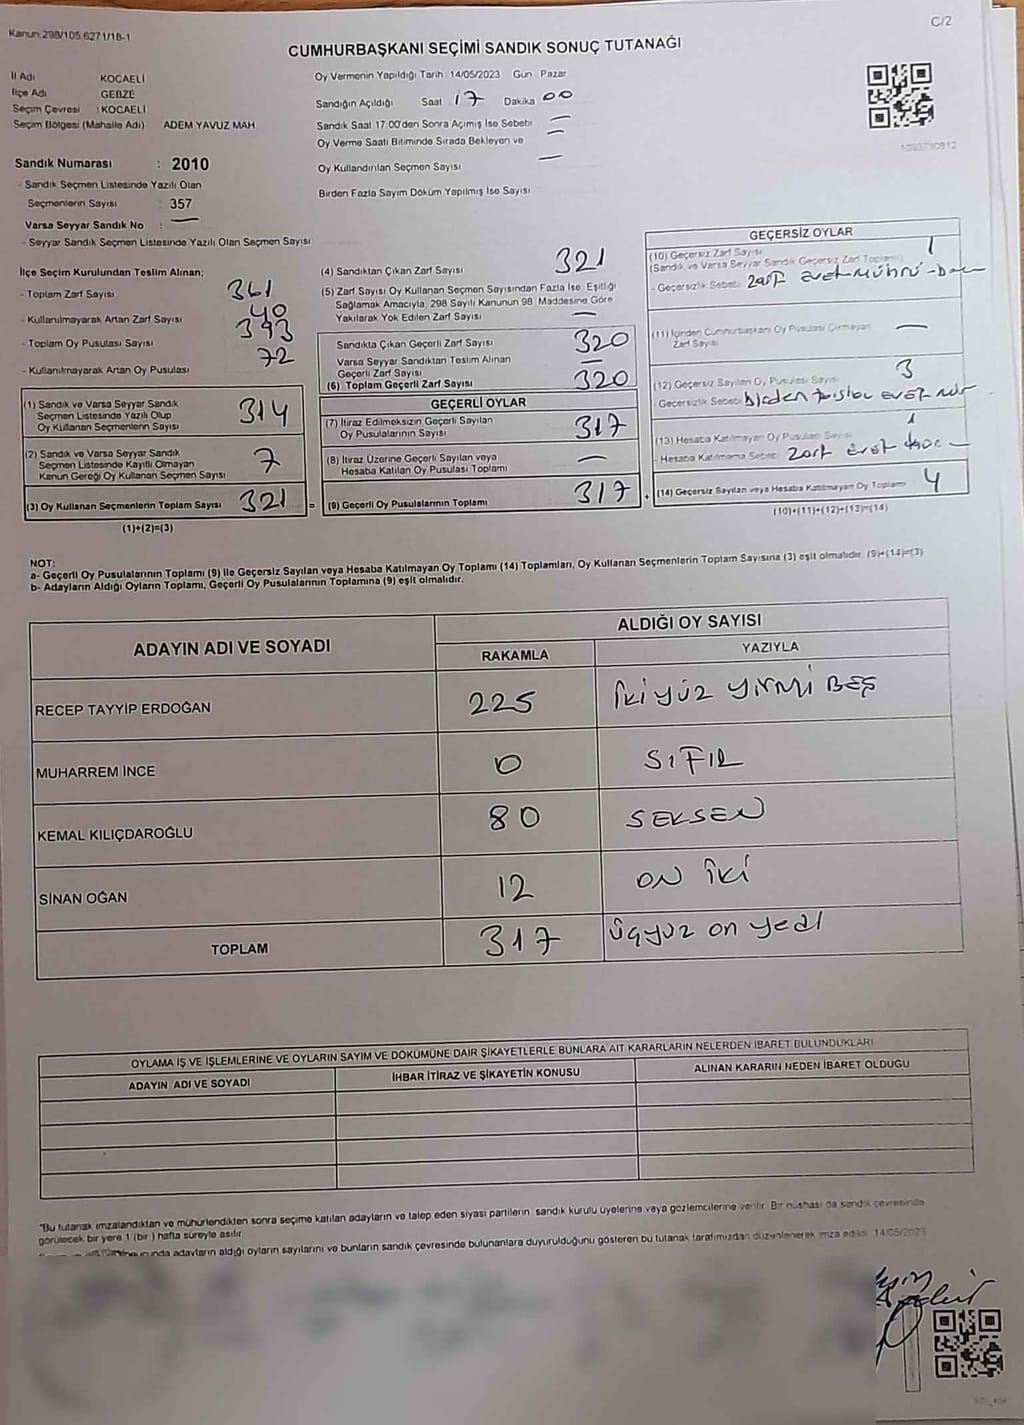 Kanun 298/105,6271/18-1
C/2
CUMHURBAŞKANI SEÇİMİ SANDIK SONUÇ TUTANAĞI
İl Adı KOCAELİ
İlçe Adı GEBZE
Seçim Çevresi : KOCAELİ
Seçim Bölgesi (Mahalle Adı) ADEM YAVUZ MAH.
Sandık Numarası : 2010
- Sandık Seçmen Listesinde Yazılı Olan
Seçmenlerin Sayısı : 357
Varsa Seyyar Sandık No : —
- Seyyar Sandık Seçmen Listesinde Yazılı Olan Seçmen Sayısı
Oy Vermenin Yapıldığı Tarih 14/05/2023 Gün Pazar
Sandığın Açıldığı Saat 17 Dakika 00
Sandık Saat 17:00'den Sonra Açımış İse Sebebi —
Oy Verme Saati Bitiminde Sırada Bekleyen ve —
Oy Kullandırılan Seçmen Sayısı —
Birden Fazla Sayım Döküm Yapılmış İse Sayısı
1093730812
İlçe Seçim Kurulundan Teslim Alınan;
- Toplam Zarf Sayısı 361
- Kullanılmayarak Artan Zarf Sayısı 40
- Toplam Oy Pusulası Sayısı 393
- Kullanılmayarak Artan Oy Pusulası 72
(1) Sandık ve Varsa Seyyar Sandık
Seçmen Listesinde Yazılı Olup
Oy Kullanan Seçmenlerin Sayısı 314
(2) Sandık ve Varsa Seyyar Sandık
Seçmen Listesinde Kayıtlı Olmayan
Kanun Gereği Oy Kullanan Seçmen Sayısı 7
(3) Oy Kullanan Seçmenlerin Toplam Sayısı 321 =
(1)+(2)=(3)
(4) Sandıktan Çıkan Zarf Sayısı 321
(5) Zarf Sayısı Oy Kullanan Seçmen Sayısından Fazla İse, Eşitliği
Sağlamak Amacıyla, 298 Sayılı Kanunun 98. Maddesine Göre
Yakılarak Yok Edilen Zarf Sayısı —
Sandıkta Çıkan Geçerli Zarf Sayısı 320
Varsa Seyyar Sandıktan Teslim Alınan
Geçerli Zarf Sayısı —
(6) Toplam Geçerli Zarf Sayısı 320
GEÇERLİ OYLAR
(7) İtiraz Edilmeksizin Geçerli Sayılan
Oy Pusulalarının Sayısı 317
(8) İtiraz Üzerine Geçerli Sayılan veya
Hesaba Katılan Oy Pusulası Toplamı —
(9) Geçerli Oy Pusulalarının Toplamı 317 +
GEÇERSİZ OYLAR
(10) Geçersiz Zarf Sayısı 1
(Sandık ve Varsa Seyyar Sandık Geçersiz Zarf Toplamı)
- Geçersizlik Sebebi zarf evet mührü
(11) İçinden Cumhurbaşkanı Oy Pusulası Çıkmayan —
Zarf Sayısı
(12) Geçersiz Sayılan Oy Pusulası Sayısı 3
Geçersizlik Sebebi
(13) Hesaba Katılmayan Oy Pusulası Sayısı
- Hesaba Katılmama Sebebi zarf evet
(14) Geçersiz Sayılan veya Hesaba Katılmayan Oy Toplamı 4
(10)+(11)+(12)+(13)=(14)
NOT:
a- Geçerli Oy Pusulalarının Toplamı (9) ile Geçersiz Sayılan veya Hesaba Katılmayan Oy Toplamı (14) Toplamları, Oy Kullanan Seçmenlerin Toplam Sayısına (3) eşit olmalıdır. (9)+(14)=(3)
b- Adayların Aldığı Oyların Toplamı, Geçerli Oy Pusulalarının Toplamına (9) eşit olmalıdır.
ADAYIN ADI VE SOYADI
ALDIĞI OY SAYISI
RAKAMLA YAZIYLA
RECEP TAYYİP ERDOĞAN 225 İKİ YÜZ YİRMİ BEŞ
MUHARREM İNCE 0 SIFIR
KEMAL KILIÇDAROĞLU 80 SEKSEN
SİNAN OĞAN 12 ON İKİ
TOPLAM 317 üçyüz on yedi
OYLAMA İŞ VE İŞLEMLERİNE VE OYLARIN SAYIM VE DÖKÜMÜNE DAİR ŞİKAYETLERLE BUNLARA AİT KARARLARIN NELERDEN İBARET BULUNDUKLARI
ADAYIN ADI VE SOYADI
İHBAR İTİRAZ VE ŞİKAYETİN KONUSU
ALINAN KARARIN NEDEN İBARET OLDUĞU
"Bu tutanak imzalandıktan ve mühürlendikten sonra seçime katılan adayların ve talep eden siyasi partilerin, sandık kurulu üyelerine veya gözlemcilerine verilir. Bir nüshası da sandık çevresinde
görülecek bir yere 1 (bir ) hafta süreyle asılır.
adayların aldığı oyların sayılarını ve bunların sandık çevresinde bulunanlara duyurulduğunu gösteren bu tutanak tarafımızdan düzenlenerek imza edildi. 14/05/2023